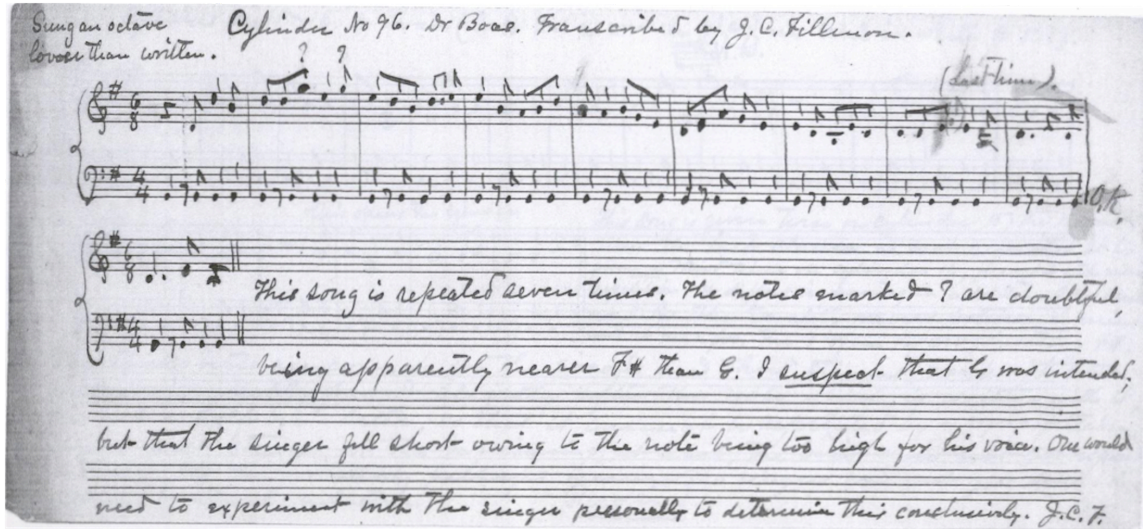 Sung an octave
lower than written.
Cylinder No 96. Dr Boas. Transcribed by J.C. Fillmore.
? ?
(Last time).
6
8
4
4
O.K.
6
8
4
4
This song is repeated seven times. The notes marked ? are doubtful,
being apparently nearer F# than G. I suspect that G was intended,
but that the singer fell short owing to the note being too high for his voice. One would
need to experiment with the singer personally to determine this conclusively. J.C.F